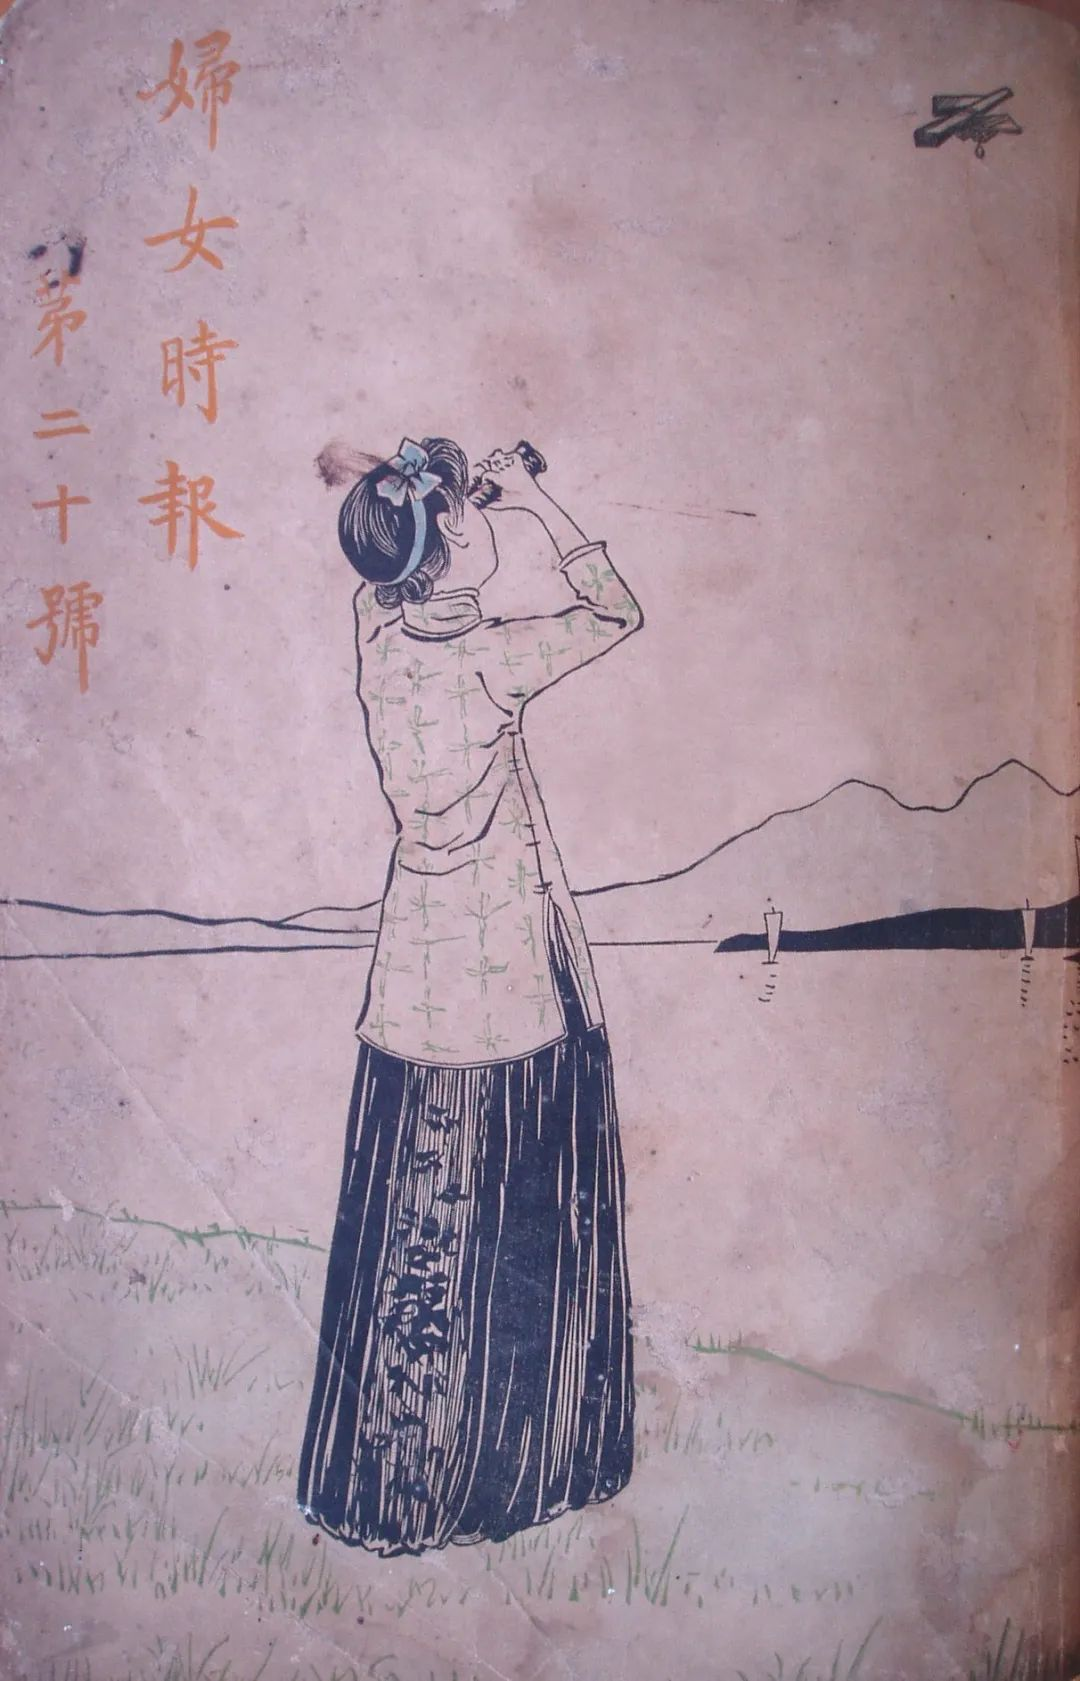 婦女時報
第二十號